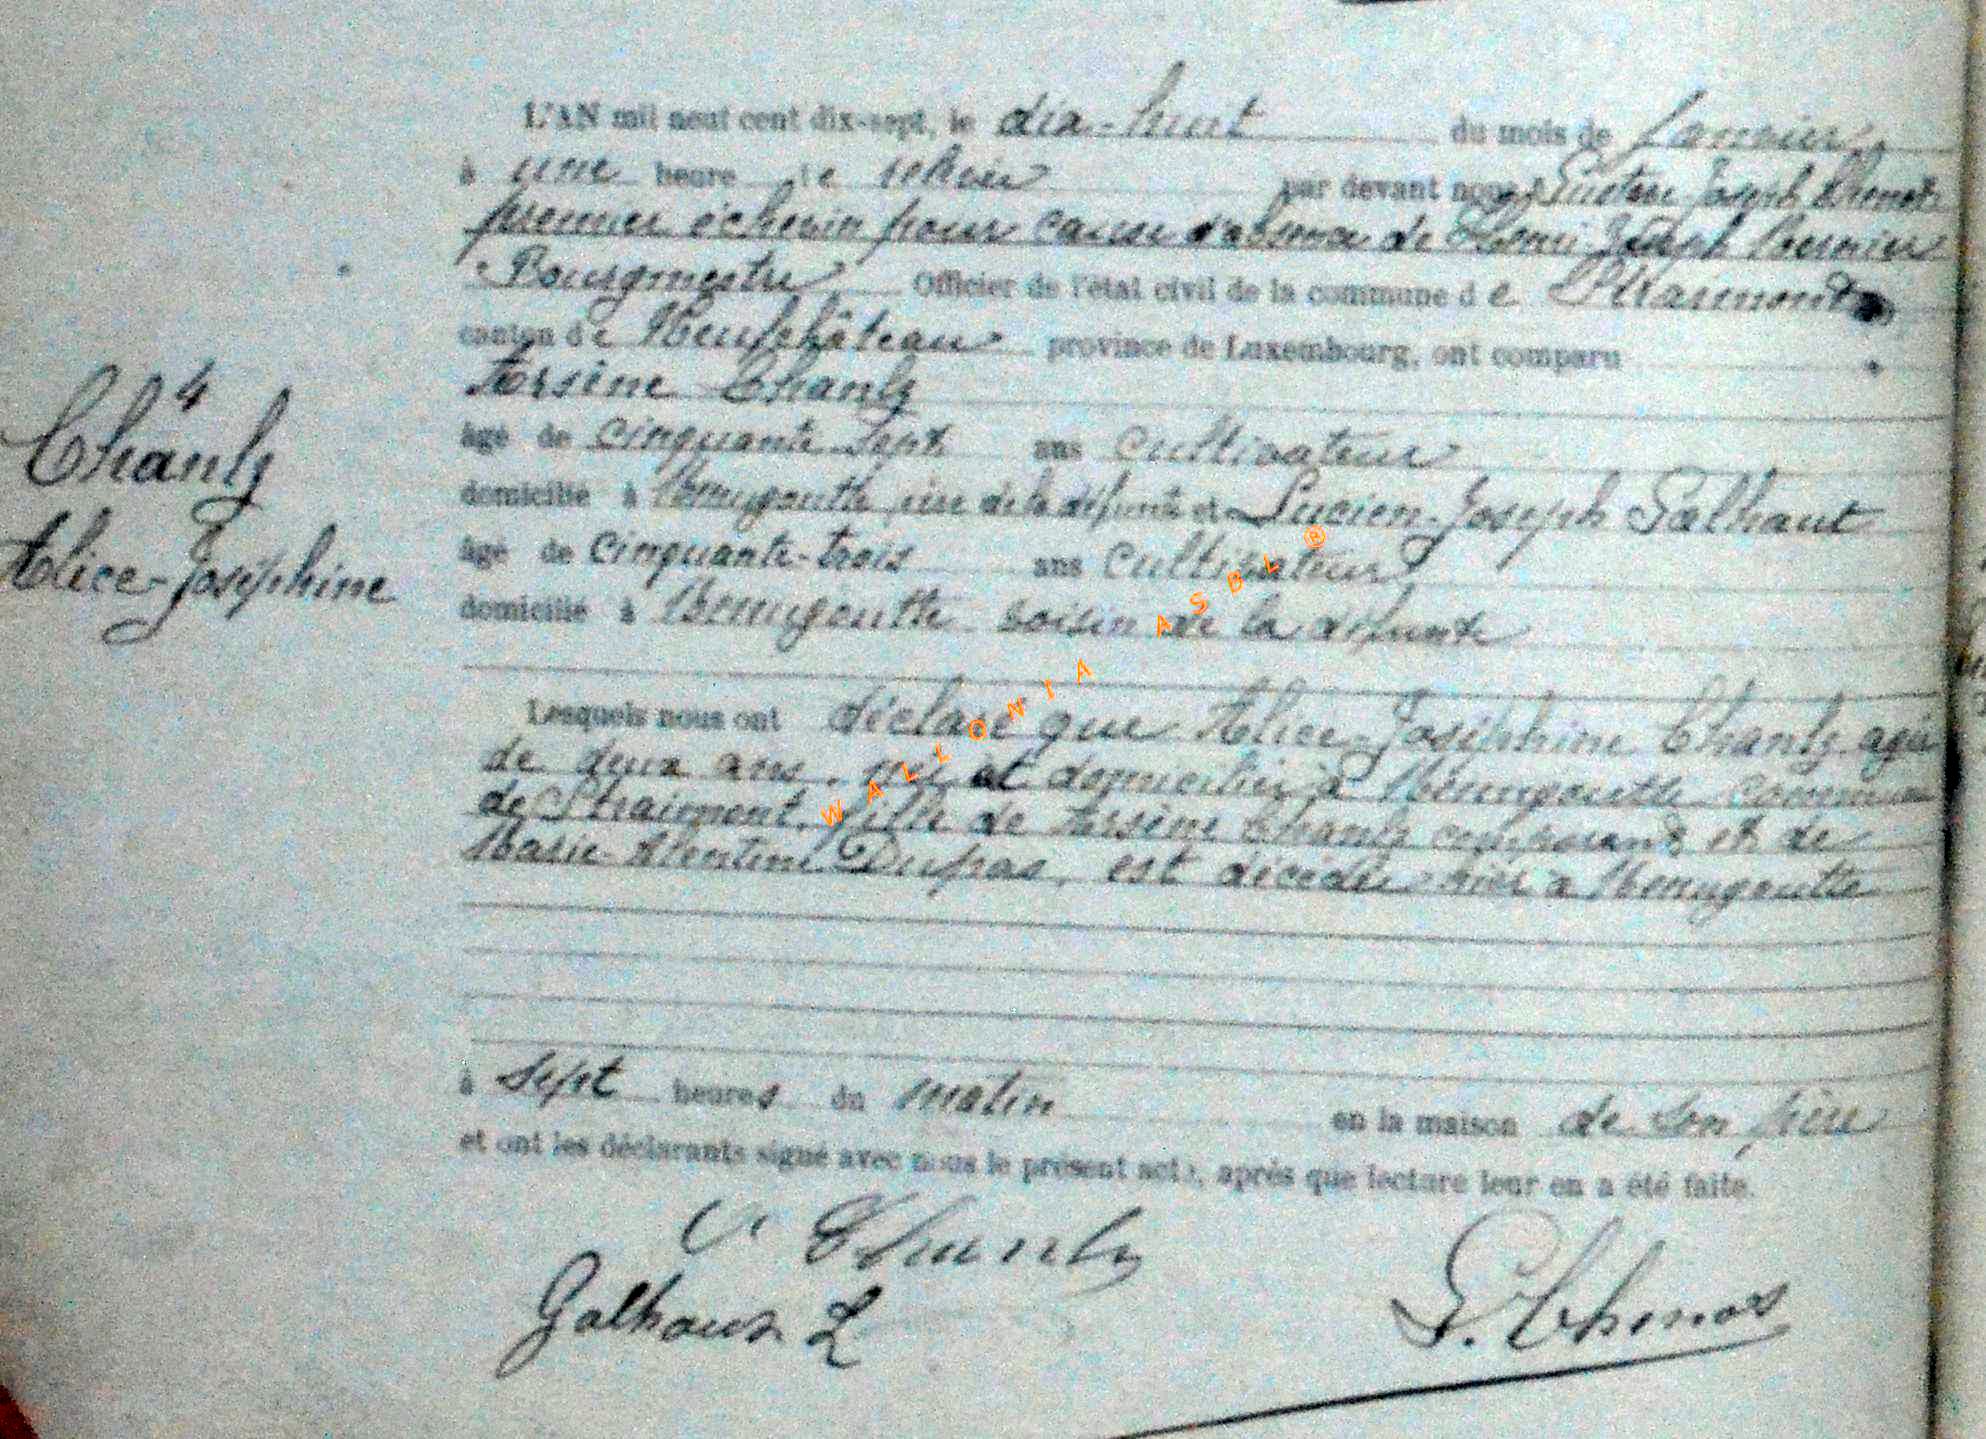 L'AN mil neuf cent dix-sept, le dix-huit du mois de Janvier
à une heure de relevée par devant nous Gustave Joseph Thenot
premier échevin pour cause d'absence de Joseph
Bourgmestre Officier de l'état civil de la commune de Straimont
canton de Neufchâteau province de Luxembourg, ont comparu
Arsène Chanly
4
Chanly
Alice-Joséphine
âgé de cinquante sept ans cultivateur
domicilié à Menugoutte père de la défunte et Lucien-Joseph Galhaut
âgé de cinquante-trois ans cultivateur
domicilié à Menugoutte voisin de la défunte
Lesquels nous ont déclaré que Alice-Joséphine Chanly agée
de deux ans, née et domiciliée à Menugoutte commune
de Straimont, fille de Arsène Chanly comparant et de
Marie Dupas, est décédée hier à Menugoutte
à sept heures du matin en la maison de son père
et ont les déclarants signé avec nous le présent acte, après que lecture leur en a été faite.
Chanly
Galhaut L
G. Thenot
WALLONIA ASBL ®